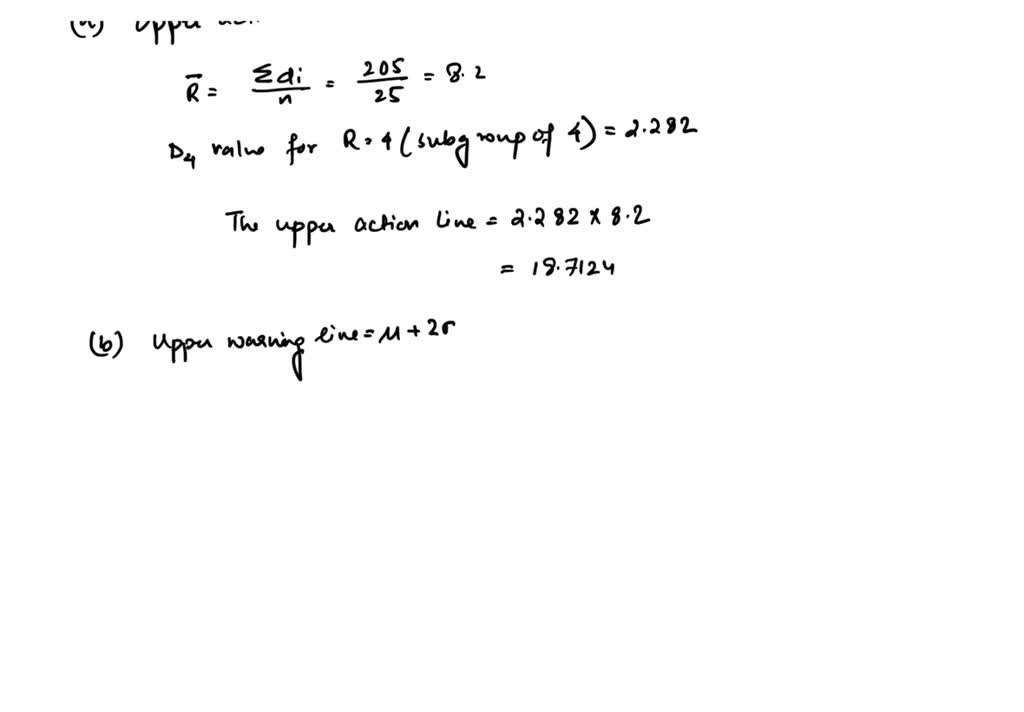 (a) Upper
R̄ = Σdi/n = 205/25 = 8.2
D4 value for R=4 (subgroup of 4) = 2.282
The upper action line = 2.282 x 8.2
= 18.7124
(b) Upper warning line = μ + 2σ